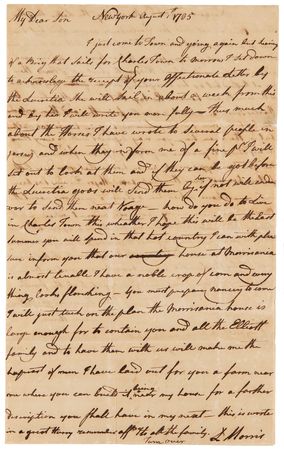 My Dear Son New York August 1785
I just come to Town and going again but hearing
of a Brig that Sails for Charles Town to morrow I set down
to acknowledge the receipt of your Affectionate letter by
the Lucretia She will Sail in about a week from this
and by her I will write you more fully Thus much
about the Horses I have wrote to Several people in
and when they inform me of a fine pr I will
set out to look at them and if they can be got before
the Lucretia goes will Send them by her if not will endea
vor to Send them next Voage how do you do to live
in Charles Town this wheather, I hope this will be the last
summer you will spend in that hot country I can with plea
sure inform you that our house at Morrisania
is almost built. I have a noble crop of corn and every
thing looks flourishing. You must prepare Nancy to come
I will just on the plan the Morrisania house is
large enough for to contain you and all the Elliott
family and to have them with us will make me the
happiest of men I have laid out for you a farm near
me where you can build it being near my house for a farther
discription you shall have in my next this is wrote
in a great Hurry remember aff to all the family.
Turn over L Morris